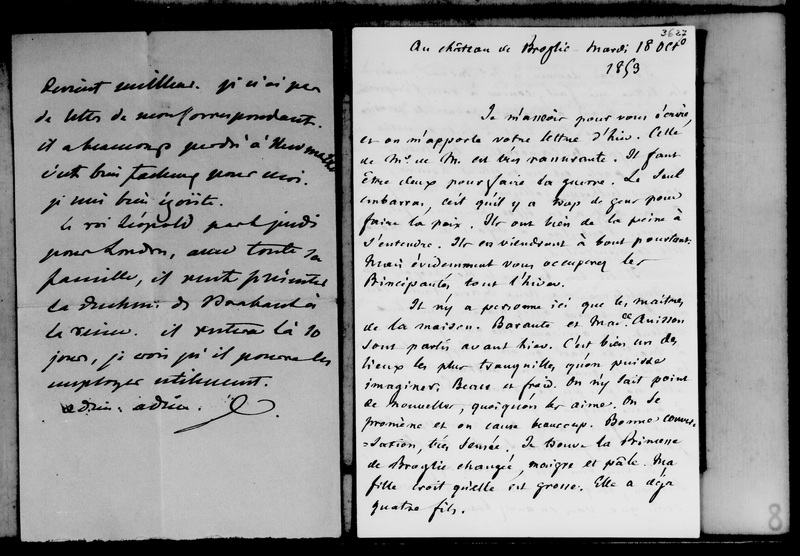 devient meilleur. je n'ai pas
de lettre de mon correspondant.
il a beaucoup perdu à
c'est bien facheux pour moi.
je suis bien égoïste.
Le roi Léopold part jeudi
pour Londres, avec toute sa
famille, il veut présenter
la duchesse de Brabant à
la reine. il restera là 10
jours, je crois qu'il pourra les
employer utilement.
adieu. adieu.
3627
Au château de Broglie - Mardi 18 Octo
1853
Je m'assois pour vous écrire,
et on m'apporte votre lettre d'hier. Celle
de Mr. de M. est très rassurante. Il faut
être deux pour faire la guerre. Le seul
embarras, c'est qu'il y a trop de gens pour
faire la paix. Ils ont bien de la peine à
s'entendre. Ils en viendront à bout pourtant.
Mais évidemment vous occuperez les
Principautés tout l'hiver.
Il n'y a personne ici que les maîtres
de la maison. Barante et Made. Anisson
sont partis avant hier. C'est bien un des
lieux les plus tranquilles qu'on puisse
imaginer. Beau et froid. On n'y sait point
de nouvelles, quoiqu'on les aime. On se
promène et on cause beaucoup. Bonne conver
=sation, très sensée. Je trouve la Princesse
de Broglie changée, maigre et pâle. Ma
fille croit qu'elle est grosse. Elle a déjà
quatre fils.
8